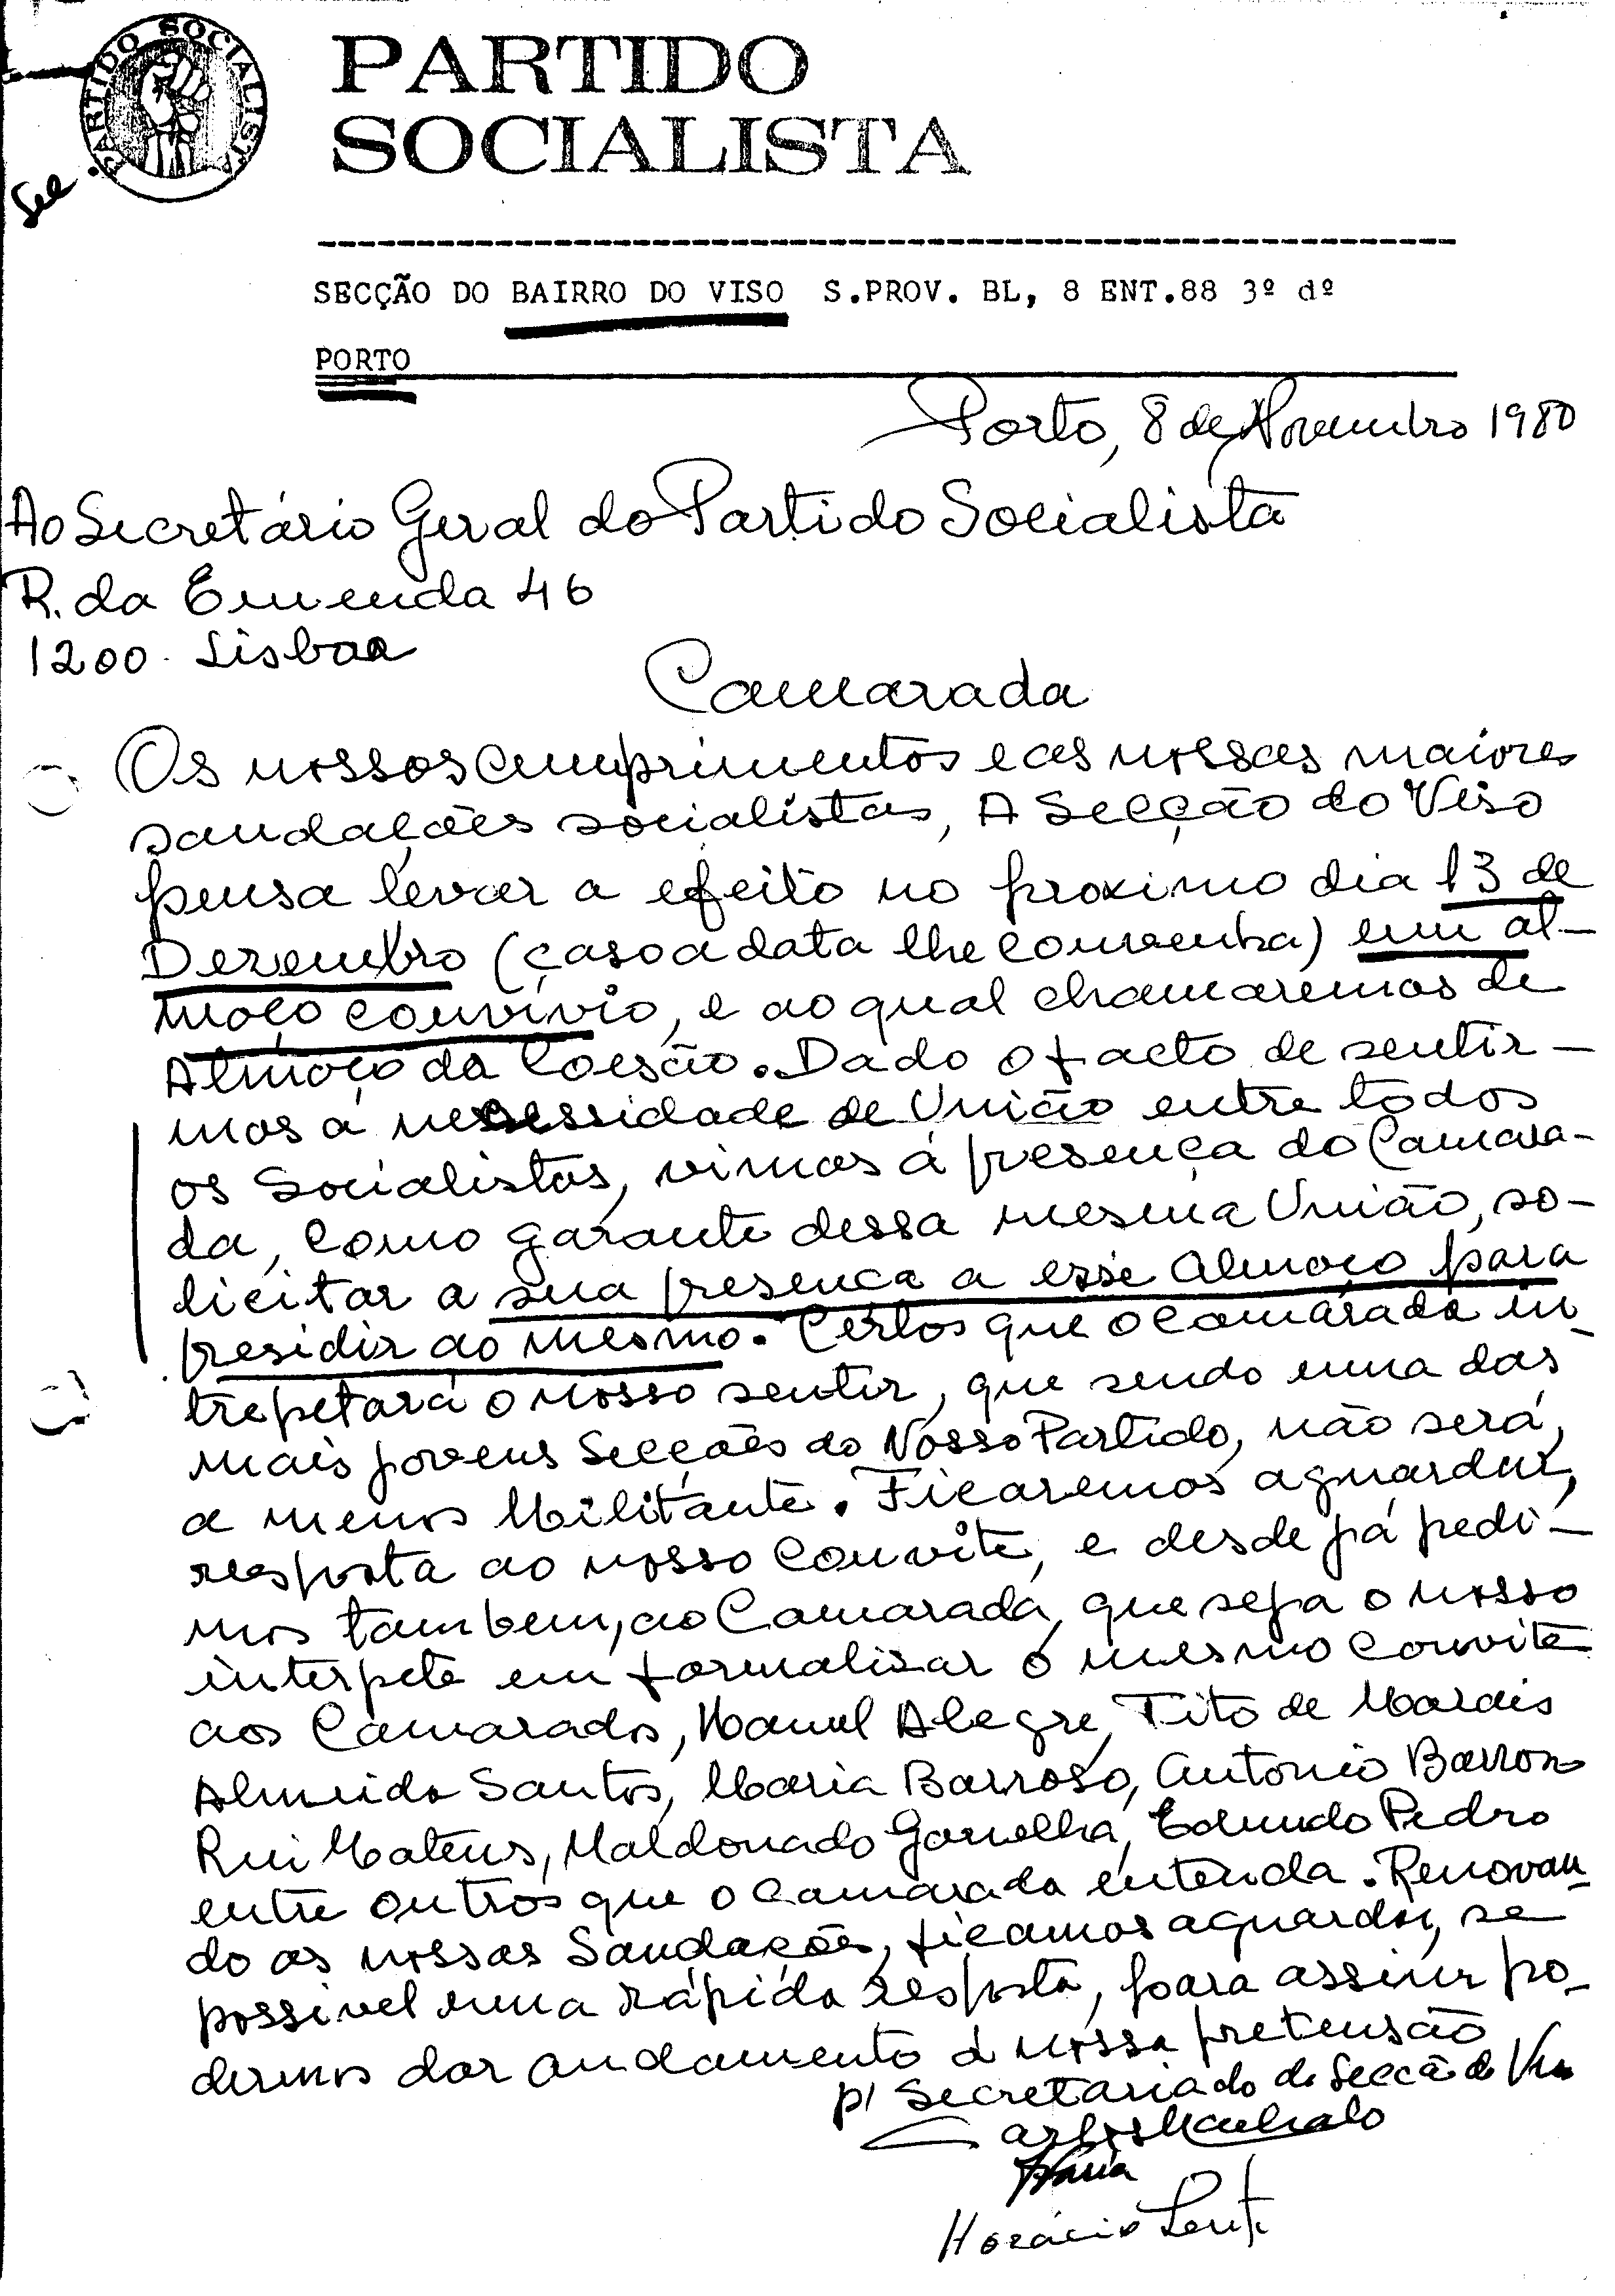 PARTIDO SOCIALISTA
PARTIDO
SOCIALISTA
SECÇÃO DO BAIRRO DO VISO S.PROV. BL, 8 ENT.88 3º dº
PORTO
Porto, 8 de Novembro 1980
Ao Secretário Geral do Partido Socialista
R. da Emenda 46
1200 - Lisboa
Camarada
Os nossos cumprimentos e as nossas maiores
saudações socialistas, A Secção do Viso
pensa levar a efeito no proximo dia 13 de
Dezembro (caso a data lhe convenha) um al-
moço convívio, e ao qual chamaremos de
Almoço da Coesão. Dado o facto de sentir-
mos a necessidade de União entre todos
os Socialistas, vimos á presença do Camara-
da, como garante dessa mesma União, so-
licitar a sua presença a esse Almoço para
presidir ao mesmo. Certos que o camarada in-
trepetará o nosso sentir, que sendo uma das
mais jovens Secções do Nosso Partido, não será,
a menos Militante. Ficaremos aguardar,
resposta ao nosso convite, e desde já pedi-
mos tambem, ao Camarada, que seja o nosso
interpete em formalizar o mesmo convite
aos Camaradas, Manuel Alegre, Tito de Morais
Almeida Santos, Maria Barroso, António Barros
Rui Mateus, Maldonado Gonelha, Edmundo Pedro
entre outros que o camarada entenda. Renovan-
do as nossas Saudações, ficamos aguardar, se
possivel uma rápida resposta, para assim po-
dermos dar andamento á nossa pretensão
p/ Secretariado da Secção do Viso
Carlos Machado
Faria
Horácio